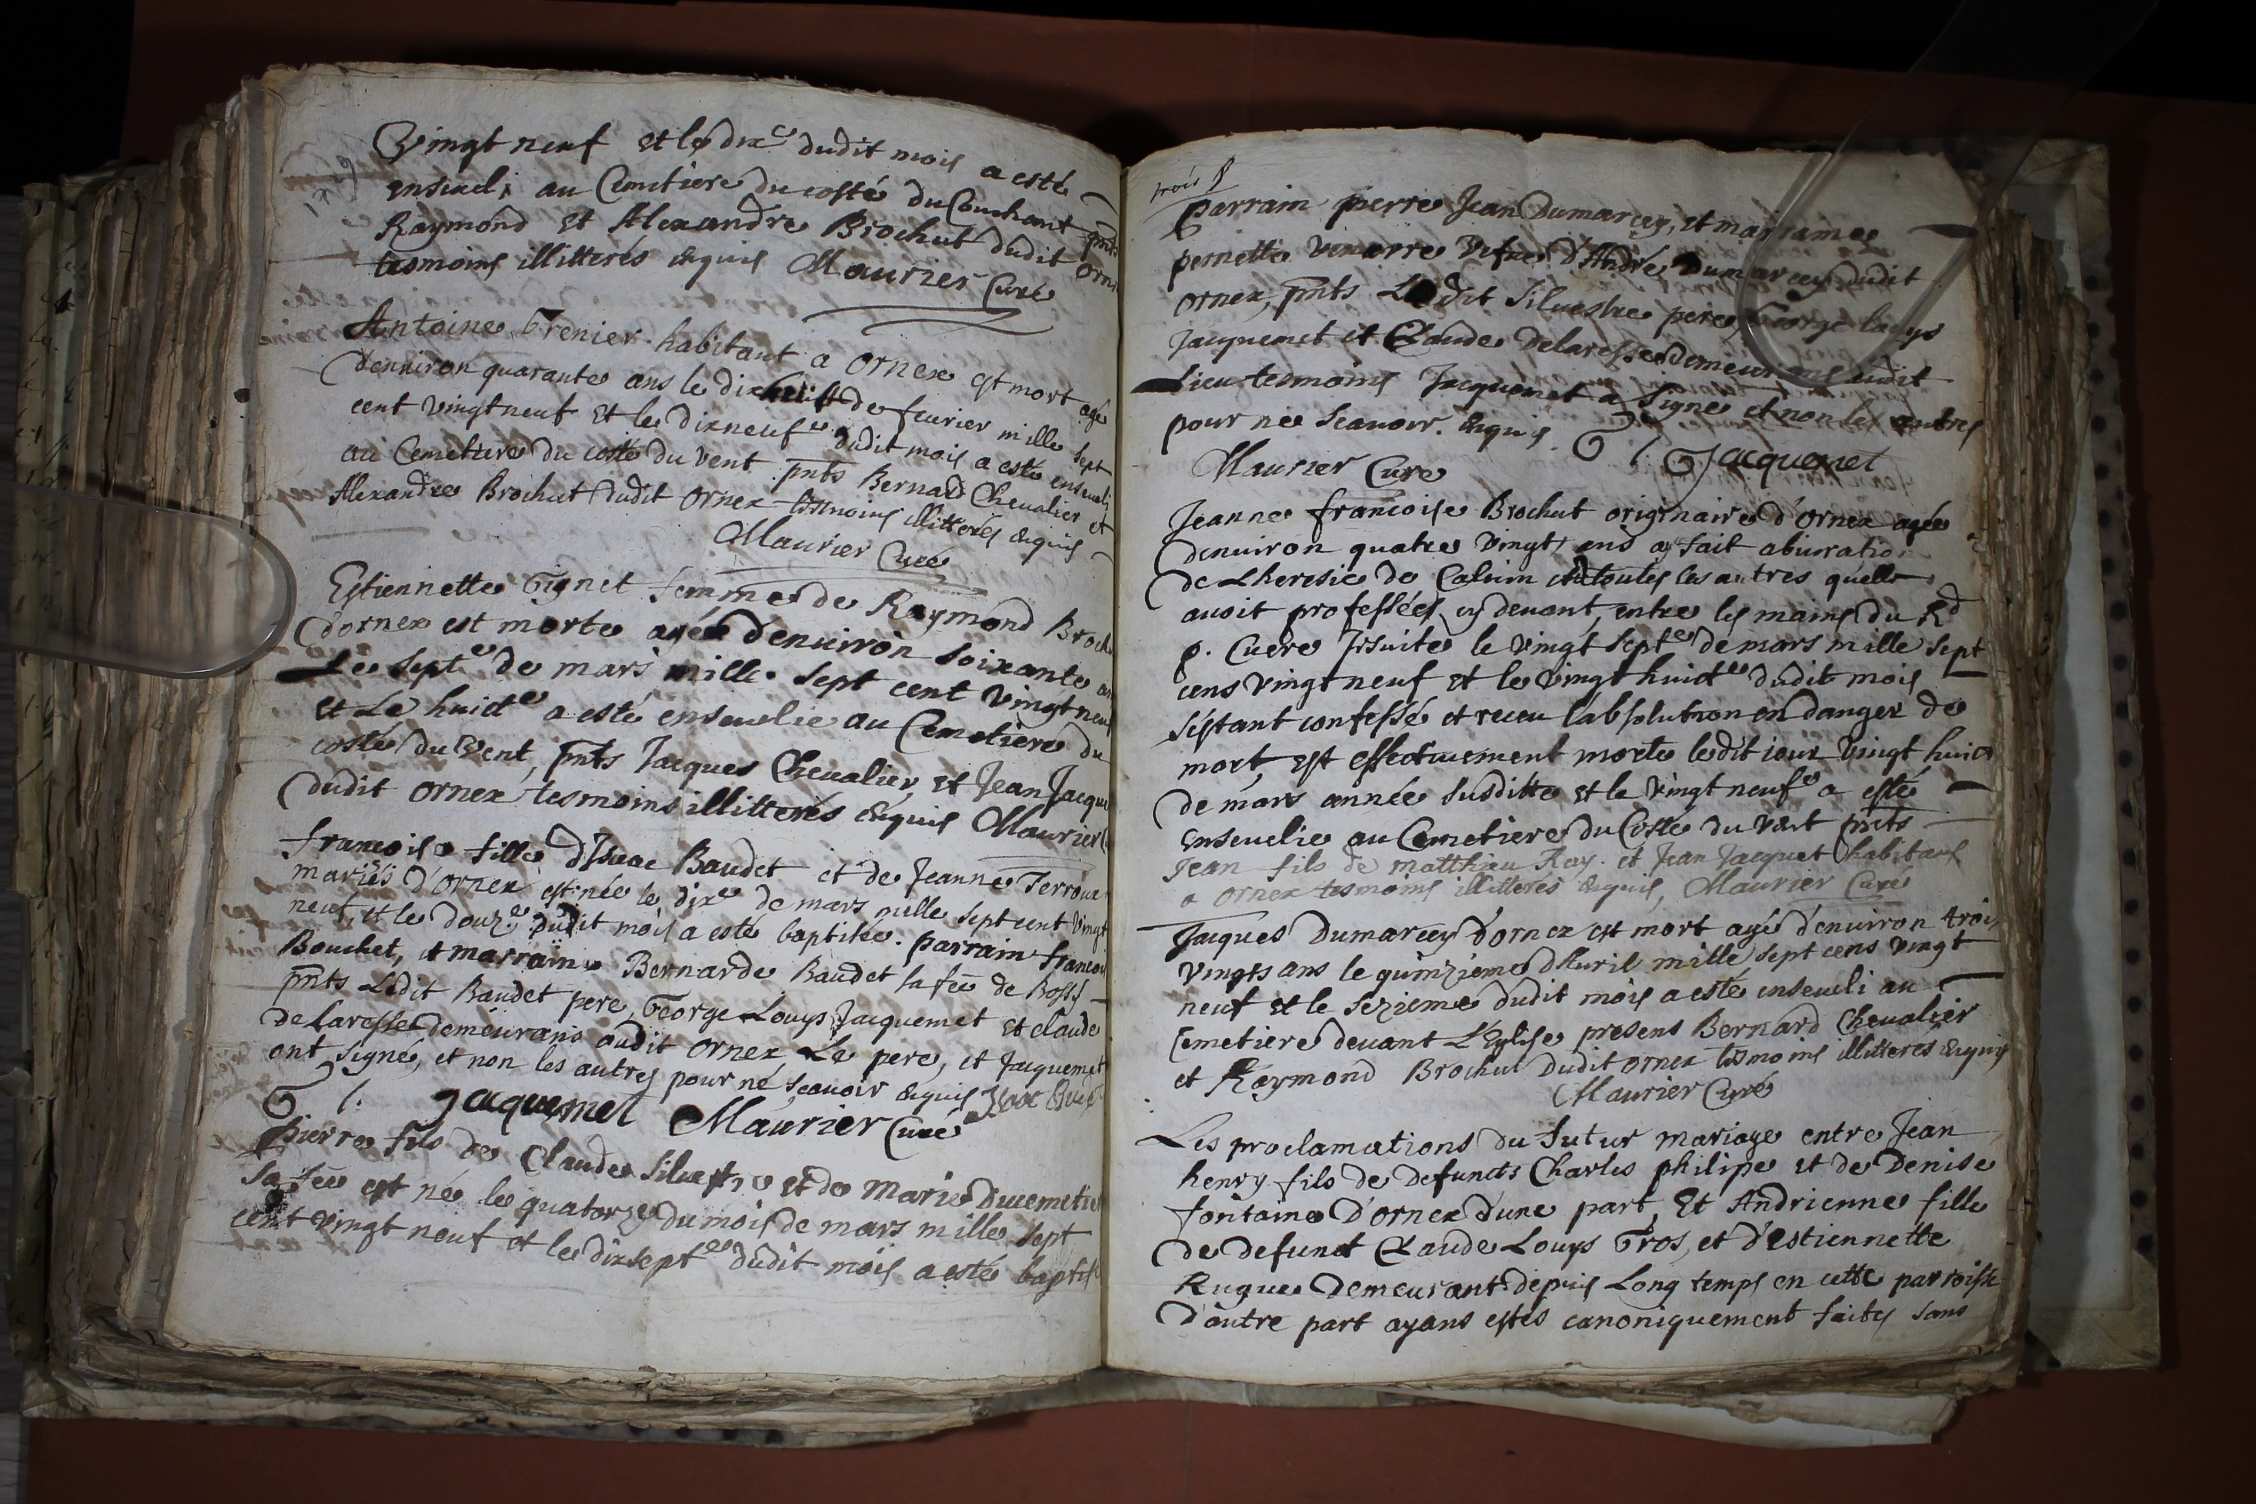 Vingt neuf et le dix.e dudit mois a esté
enseueli au Cemetiere du costé du Couchant pnts
Raymond et Alexandre Brochut dudit Orne
tesmoins illitterés enquis Maurier Curé
Antoine Grenier habitant a Ornex est mort agé
denuiron quarante ans le dix de feurier mille sept
cent vingt neuf et le dixneuf.e dudit mois a esté enseueli
au Cemetiere du costé du vent pnts Bernard Cheualier et
Alexandre Brochut dudit Ornex tesmoins illitterés enquis
Maurier Curé
Estiennette Gignet femme de Raymond Broch
d'ornex est morte agée d'enuiron soixante an
Le sept.e de mars mille sept cent vingt neuf
et Le huict.e a esté enseuelie au Cemetiere du
costé du vent, pnts Jacques Cheualier et Jean Jacque
dudit ornex tesmoins illitterés enquis Maurier C
francoise fille d'Isaac Baudet et de Jeanne Terroux
mariés d'ornex est née le dix.e de mars mille sept cent vingt
neuf, et le douz.e dudit mois a esté baptisée. parrain francois
Bouchet, et marraine Bernarde Baudet sa fẽe de Bossy
pnts Ledit Baudet pere, George Louys Jacquemet et Claude
de Laresse demeurans audit Ornex Le pere, et Jacquemet
ont signé, et non les autres pour ne scauoir enquis
G l. Jacquemet Maurier Curé
Pierre fils de Claude Siluestre et de Marie Ducemetie
sa fẽe est né le quatorze du mois de mars mille sept
cent vingt neuf et le dixsept.e dudit mois a esté baptisé
parrain pierre Jean Dumarcey, et marraine
pernette vefue d'André Dumarcey dudit
Ornex, pnts Ledit Siluestre pere, George louys
Jacquemet et Claude delaresse demeurans audit
Lieu tesmoins Jacquemet a signé et non les autres
pour ne scauoir. enquis. G l. Jacquemet
Maurier Curé
Jeanne francoise Brochut originaire d'ornex agée
denuiron quatre vingt ans a fait abiuration
de Lheresie de Caluin et toutes les autres quelle
auoit professées cy deuant, entre les mains du Rd
p. Cuere Jesuite le vingt sept.e de mars mille sept
cens vingt neuf et le vingt huict.e dudit mois
s'estant confessé et receu l'absolution en danger de
mort, est effectiuement morte ledit iour vingt huict
de mars année susditte et le vingt neuf.e a esté
enseuelie au Cemetiere du Costé du vent pnts
Jean fils de matthieu Ray. et Jean Jacquet habitans
a ornex tesmoins illitterés enquis, Maurier Curé
Jacques Dumarcey d'ornex est mort agé d'enuiron trois
vingts ans le quinzieme d'Auril mille sept cens vingt
neuf et le sezieme dudit mois a esté enseueli au
Cemetiere deuant L'Eglise presens Bernard Cheualier
et Raymond Brochut dudit ornex tesmoins illitteres enquis
Maurier Curé
Les proclamations du futur mariage entre Jean
henry fils de defuncts Charles philipe et de Denise
fontaine d'ornex d'une part, Et Andrienne fille
de defunct Claude Louys Gros, et d'estiennette
Rugue demeurant depuis Long temps en cette parroisse
d'autre part ayans estés canoniquement faites sans